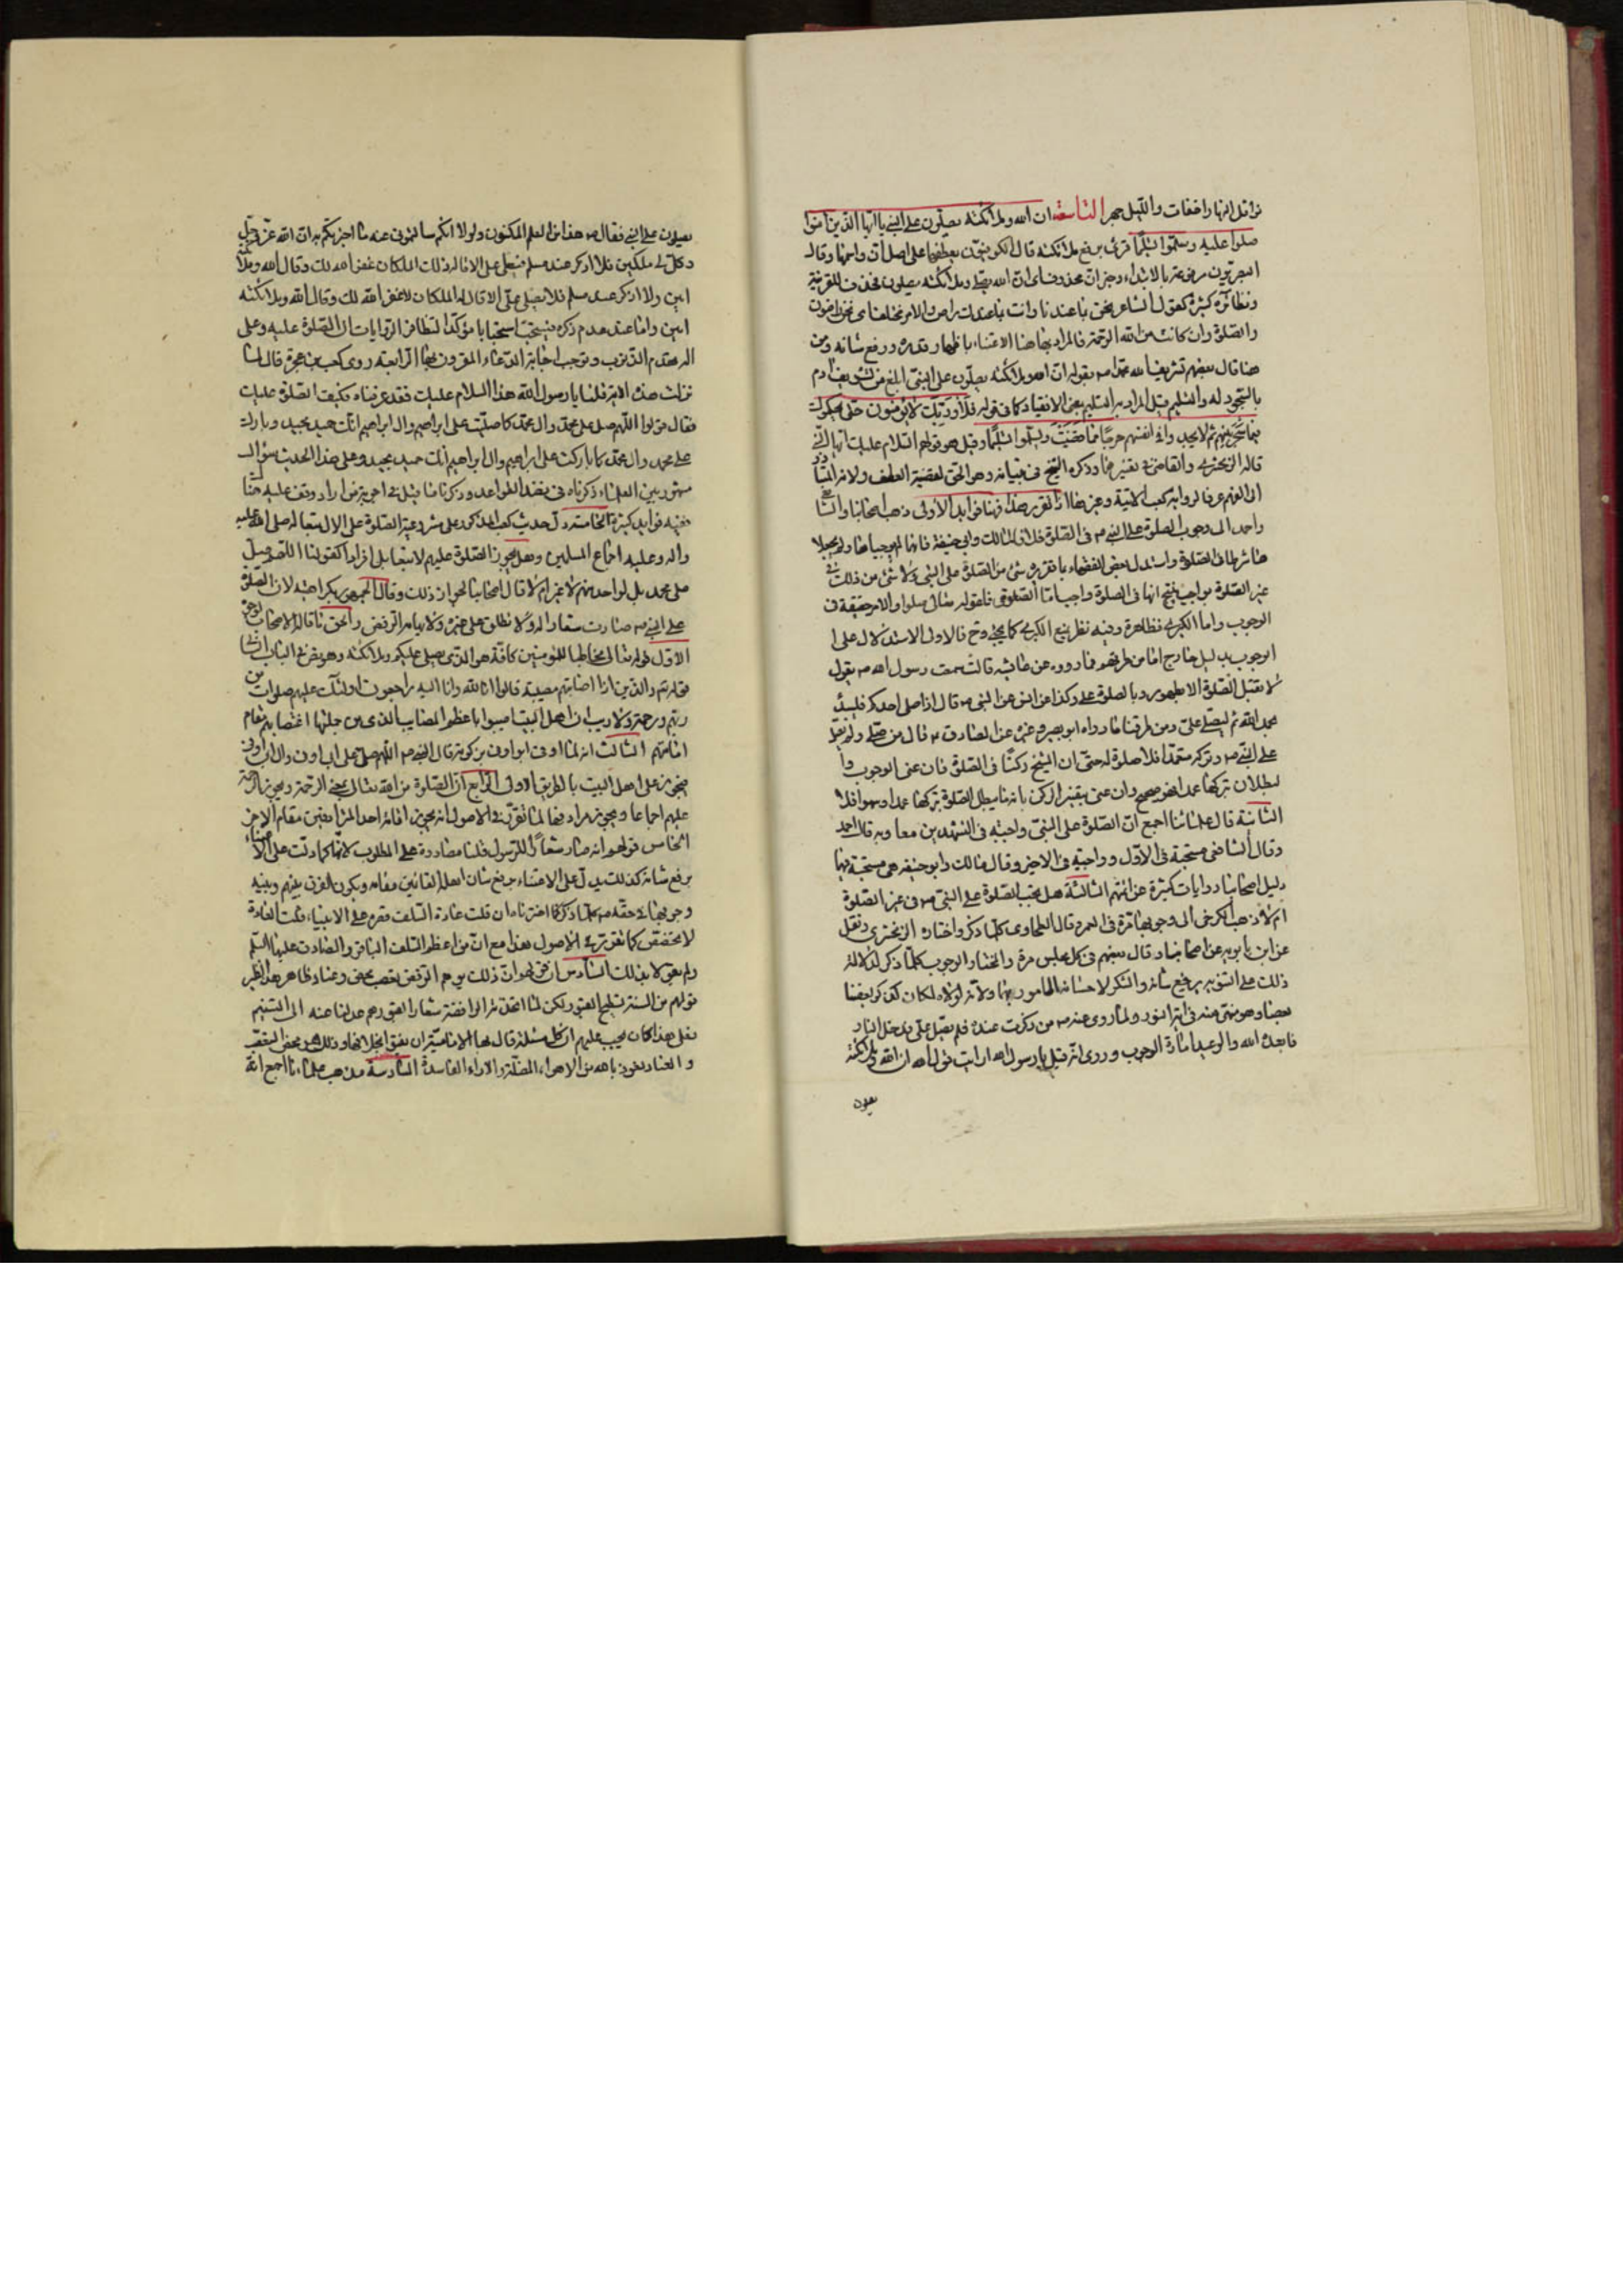 نوافل النهار اخفات والليل جهر التاسعة ان الله وملائكته يصلون على النبي يا ايها الذين امنوا
صلوا عليه وسلموا تسليما قرئ برفع ملائكته قال الكوفيون بعطفها على اصل ان واسمها وقال
البصريون مرفوعة بالابتداء وخبر ان محذوف اى ان الله يصلى وملائكته يصلون فحذف للقرينة
ونظائره كثيرة كقول الشاعر نحن بما عندنا وانت بما عندك راض والامر مختلف اى نحن راضون
والصلوة وان كانت من الله الرحمة فالمراد بها هنا الاعتناء باظهار قدره ورفع شانه ومن
هنا قال بعضهم تشريف الله محمدا ص بقوله ان الله وملائكته يصلون على النبي ابلغ من تشريف ادم
بالسجود له والتسليم قيل المراد به التسليم بمعنى الانقياد كما في قوله فلا وربك لا يؤمنون حتى يحكموك
فيما شجر بينهم ثم لا يجدوا في انفسهم حرجا مما قضيت ويسلموا تسليما وقيل هو قولهم السلام عليك ايها النبي
قاله الزمخشري والقاضي في تفسيرهما وذكره الشيخ في تبيانه وهو الحق لقضية العطف ولانه المتبادر
الى الفهم عرفا لرواية كعب الاتية وغيرها اذا تقرر هذا فهنا فوايد الأولى ذهب اصحابنا والشافعي
واحمد الى وجوب الصلوة على النبي ص في الصلوة خلافا لمالك وابي حنيفة فانهما لم يوجباها ولم يجعلا
ها شرطا في الصلوة واستدل بعض الفقهاء بما تقريره شئ من الصلوة على النبي ص واجب ولا شئ من ذلك في
غير الصلوة بواجب ينتج انها في الصلوة واجب اما الصغرى فلقوله تعالى صلوا والامر حقيقة في
الوجوب واما الكبرى فظاهرة وفيه نظر لمنع الكبرى كما يجئ وح فالاولى الاستدلال على
الوجوب بدليل خارج اما من طريقهم فما رووه عن عائشه قالت سمعت رسول الله ص يقول
لا تقبل الصلوة الا بطهور وبالصلوة على وكذا عن انس عن النبي ص قال اذا صلى احدكم فليبدأ
بحمد الله ثم ليصل على ومن طريقنا ما رواه ابو بصير وغيره عن الصادق ع قال من صلى ولم يصل
على النبي ص وتركه متعمدا فلا صلوة له حتى ان الشيخ جعلها ركنا في الصلوة فان عنى الوجوب وا
لبطلان بتركها عمدا فهو صحيح وان عنى بتفسير الركن بانه ما يبطل الصلوة بتركه عمدا وسهوا فلا
الثانية قال علمائنا اجمع ان الصلوة على النبي واجبة في التشهدين معا وبه قال احمد
وقال الشافعي مستحبة في الاول وواجبة في الاخير وقال مالك وابو حنيفه هي مستحبة فيهما
دليل اصحابنا روايات كثيرة عن ائمتهم الثالثة هل يجب الصلوة على النبي ص في غير الصلوة
ام لا ذهب الكرخي الى وجوبها مرة في العمر وقال الطحاوى كلما ذكر واختاره الزمخشري ونقل
عن ابن بابويه من اصحابنا وقال بعضهم في كل مجلس مرة والمختار الوجوب كلما ذكر لدلالة
ذلك على التنويه برفع شانه والشكر لاحسانه المامور بهما ولانه لولاه لكان كذكر بعضنا
بعضا وهو منهى عنه في اية النور ولما روى عنه ص من ذكرت عنده فلم يصل على فدخل النار
فابعده الله والوعيد امارة الوجوب وروى انه قيل يا رسول الله ارايت قول الله ان الله وملائكته
يصلون
يصلون على النبي فقال ص هذا من العلم المكنون ولولا انكم سالتموني عنه ما اخبرتكم به ان الله عز وجل
وكل بي ملكين فلا اذكر عند مسلم فيصلى على الا قال له ذلك الملكان غفر الله لك وقال الله وملائكته
امين ولا اذكر عند مسلم فلا يصلى على الا قال له الملكان لا غفر الله لك وقال الله وملائكته
امين واما عند عدم ذكره فيستحب استحبابا مؤكدا لتظافر الروايات ان الصلوة عليه وعلى
اله تهدم الذنوب وتوجب اجابة الدعاء المقرون بها الرابعة روى كعب بن عجرة قال لما
نزلت هذه الاية قلنا يا رسول الله هذا السلام عليك فقد عرفناه فكيف الصلوة عليك
فقال قولوا اللهم صل على محمد وال محمد كما صليت على ابراهيم وال ابراهيم انك حميد مجيد وبارك
على محمد وال محمد كما باركت على ابراهيم وال ابراهيم انك حميد مجيد وعلى هذا الحديث سؤال
مشهور بين العلماء ذكرناه في نضد القواعد وذكرنا ما قيل في اجوبته من اراد وقف عليه هنا
ففيه فوايد كثيرة الخامسة دل حديث كعب المذكور على مشروعية الصلوة على الال تبعا له صلى الله عليه
واله وعليه اجماع المسلمين وهل يجوز الصلوة عليهم لا تبعا بل افرادا كقولنا اللهم صل
على ال محمد بل لواحد منهم لا غير ام لا قال اصحابنا بجواز ذلك وقال الجمهور بكراهيته لان الصلوة
على النبي ص صارت شعارا له فلا تطلق على غيره ولايهامه الرفض والحق ما قاله الاصحاب لوجوه
الاول قوله تعالى مخاطبا للمؤمنين كافة هو الذى يصلى عليكم وملائكته وهو نص في الباب الثاني
قوله تعالى والذين اذا اصابتهم مصيبة قالوا انا لله وانا اليه راجعون اولئك عليهم صلوات من
ربهم ورحمة ولا ريب ان اهل البيت اصيبوا باعظم المصايب الذى من جملتها اغتصابهم مقام
امامتهم الثالث انه لما اتى ابو اوفى بزكوته قال النبي ص اللهم صل على ابى اوفى وال ابى اوفى
فيجوز على اهل البيت بالطريق الاولى الرابع ان الصلوة من الله تعالى بمعنى الرحمة ويجوز الرحمة
عليهم اجماعا ويجوز مرادفها لما تقرر في الاصول انه يجوز اقامة احد المترادفين مقام الاخر
الخامس قولهم انه صار شعارا للرسول قلنا مصادرة على المطلوب لانها كما دلت على الاعتناء
برفع شانه كذلك يدل على الاعتناء برفع شان اهله القائمين مقامه ويكون الفرق بينهم وبينه
وجوبها في حقه ص كلما ذكر كما اخترناه ان قلت عادة السلف قصره على الانبياء قلت العادة
لا تخصص كما تقرر في الاصول هذا مع ان من اعظم السلف الباقر والصادق عليهما السلم
ولم يقولا بذلك السادس ان قولهم ان ذلك يوهم الرفض تعصب محض وعناد ظاهر هذا نظير
قولهم من السنة تسطيح القبور لكن لما اتخذته الرافضة شعارا لقبورهم عدلنا عنه الى التسنيم
فعلى هذا كان يجب عليهم ان كل مسئلة قال بها الامامية ان يفتوا بخلافها وذلك هو محض التعصب
والعناد نعوذ بالله من الاهواء المضلة والاراء الفاسدة السادسة مذهب علمائنا اجمع انه